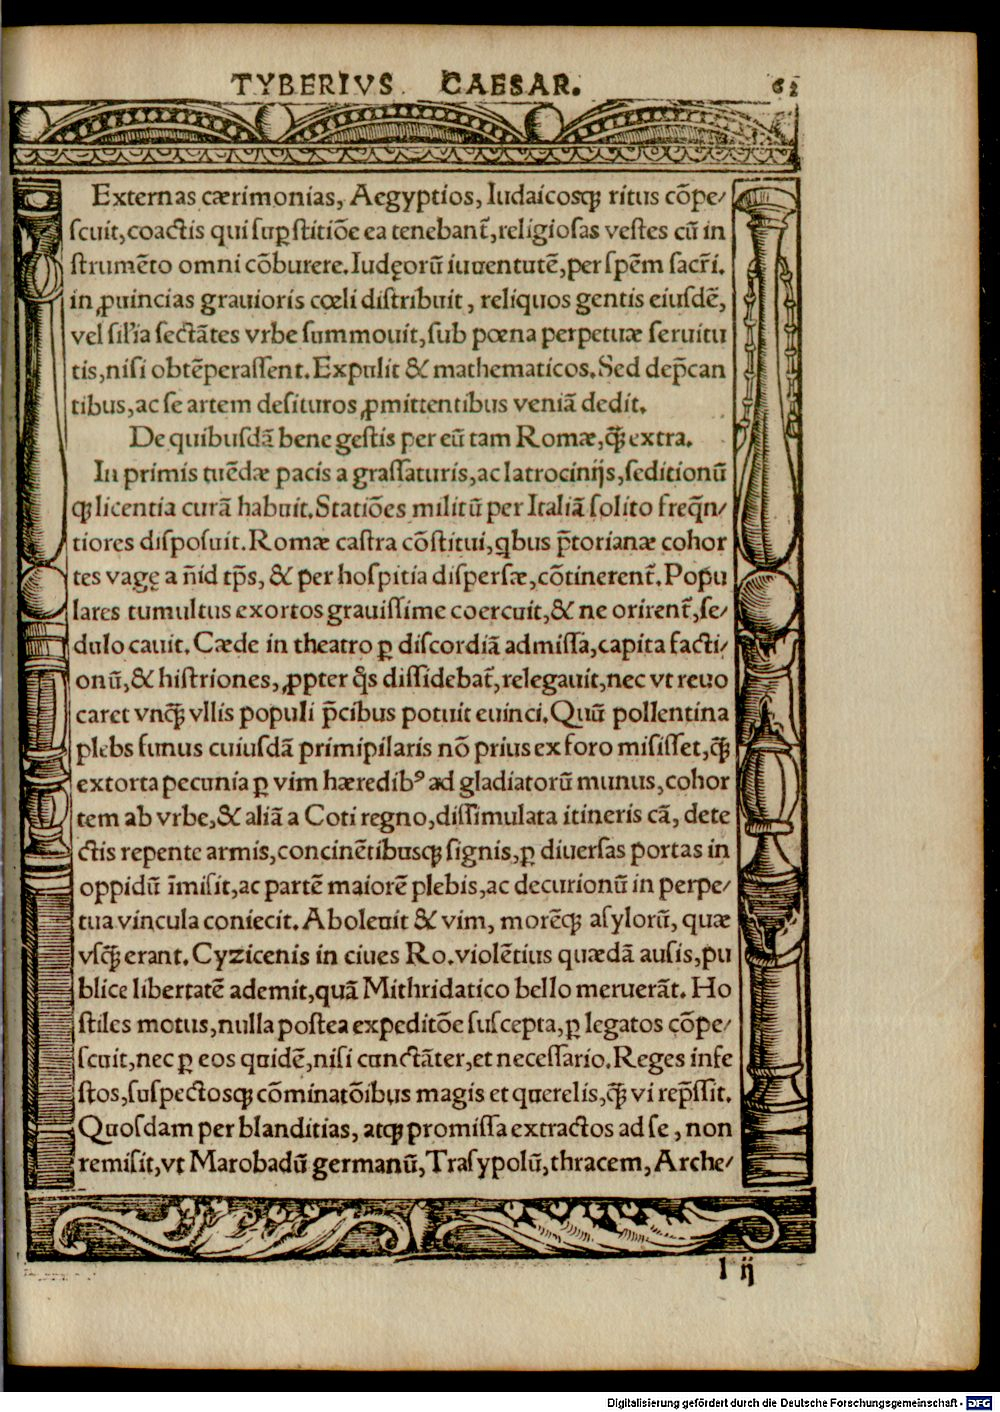 TYBERIVS CAESAR. 62
Externas cærimonias, Aegyptios, Iudaicosqꝫ ritus cõpe/
ſcuit, coactis qui suꝑſtitiõe ea tenebant̃, religioſas veſtes cũ in
ſtrumẽto omni cõburere. Iudęorũ iuuentutẽ, per ſpẽm ſacr̃i.
in ꝓuincias grauioris cœli diſtribuit, reliquos gentis eiuſdẽ,
vel ſil̃ia ſectãtes vrbe ſummouit, ſub pœna perpetuæ ſeruitu
tis, niſi obtẽperaſſent. Expulit & mathematicos. Sed dep̃can
tibus, ac ſe artem deſituros ꝓmittentibus veniã dedit.
De quibuſdã bene geſtis per eũ tam Romæ, q̃ꝫ extra.
In primis tuẽdæ pacis a graſſaturis, ac latrocinijs, ſeditionũ
qꝫ licentia curã habuit. Statiões militũ per Italiã ſolito freq̃n/
tiores diſpoſuit. Romæ caſtra cõſtitui, qbus p̃torianæ cohor
tes vagę a ñid tp̃s, & per hoſpitia diſperſæ, cõtinerent̃. Popu
lares tumultus exortos grauiſſime coercuit, & ne orirent̃, ſe/
dulo cauit. Cæde in theatro ꝑ diſcordiã admiſſa, capita facti/
onũ, & hiſtriones, ꝓpter q̃s diſſidebat̃, relegauit, nec vt reuo
caret vnq̃ꝫ vllis populi p̃cibus potuit euinci. Quũ pollentina
plebs funus cuiuſdã primipilaris nõ prius ex foro miſiſſet, q̃ꝫ
extorta pecunia ꝑ vim hæredibꝰ ad gladiatorũ munus, cohor
tem ab vrbe, & aliã a Coti regno, diſſimulata itineris cã, dete
ctis repente armis, concinẽtibusqꝫ ſignis, ꝑ diuerſas portas in
oppidũ ĩmiſit, ac partẽ maiorẽ plebis, ac decurionũ in perpe/
tua vincula coniecit. Aboleuit & vim, morẽqꝫ aſylorũ, quæ
vſq̃ꝫ erant. Cyzicenis in ciues Ro. violẽtius quædã auſis, pu
blice libertatẽ ademit, quã Mithridatico bello meruerãt. Ho
ſtiles motus, nulla poſtea expeditõe ſuſcepta, ꝑ legatos cõpe/
ſcuit, nec ꝑ eos quidẽ, niſi cunctãter, et neceſſario. Reges infe
ſtos, ſuſpectosqꝫ cõminatõibus magis et querelis, q̃ꝫ vi rep̃ſſit.
Quoſdam per blanditias, atqꝫ promiſſa extractos ad ſe, non
remiſit, vt Marobadũ germanũ, Traſypolũ, thracem, Arche/
I ij
Digitalisierung gefördert durch die Deutsche Forschungsgemeinschaft - DFG